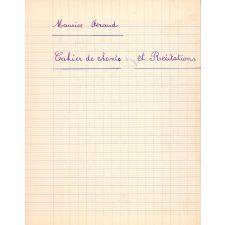 Maurice Féraud
Cahier de chants et Récitations